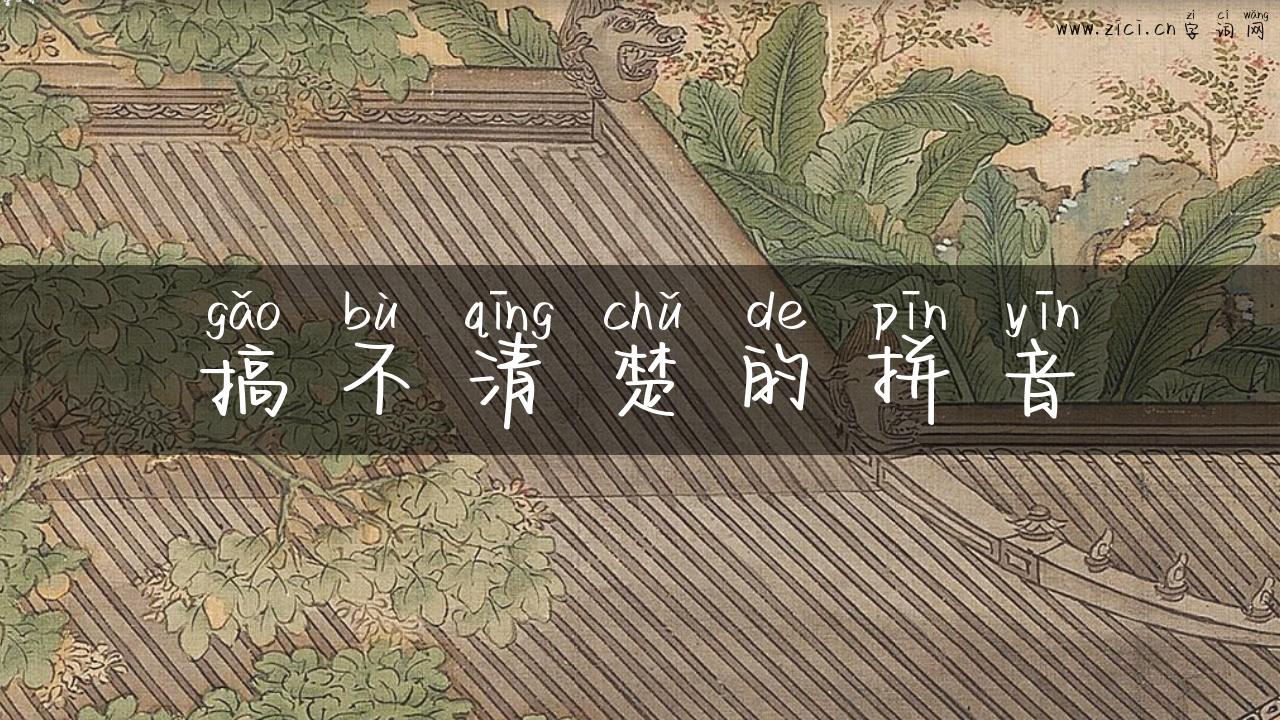 zì cí wǎng
www.zici.cn 字词网
gǎo bù qīng chǔ de pīn yīn
搞不清楚的拼音